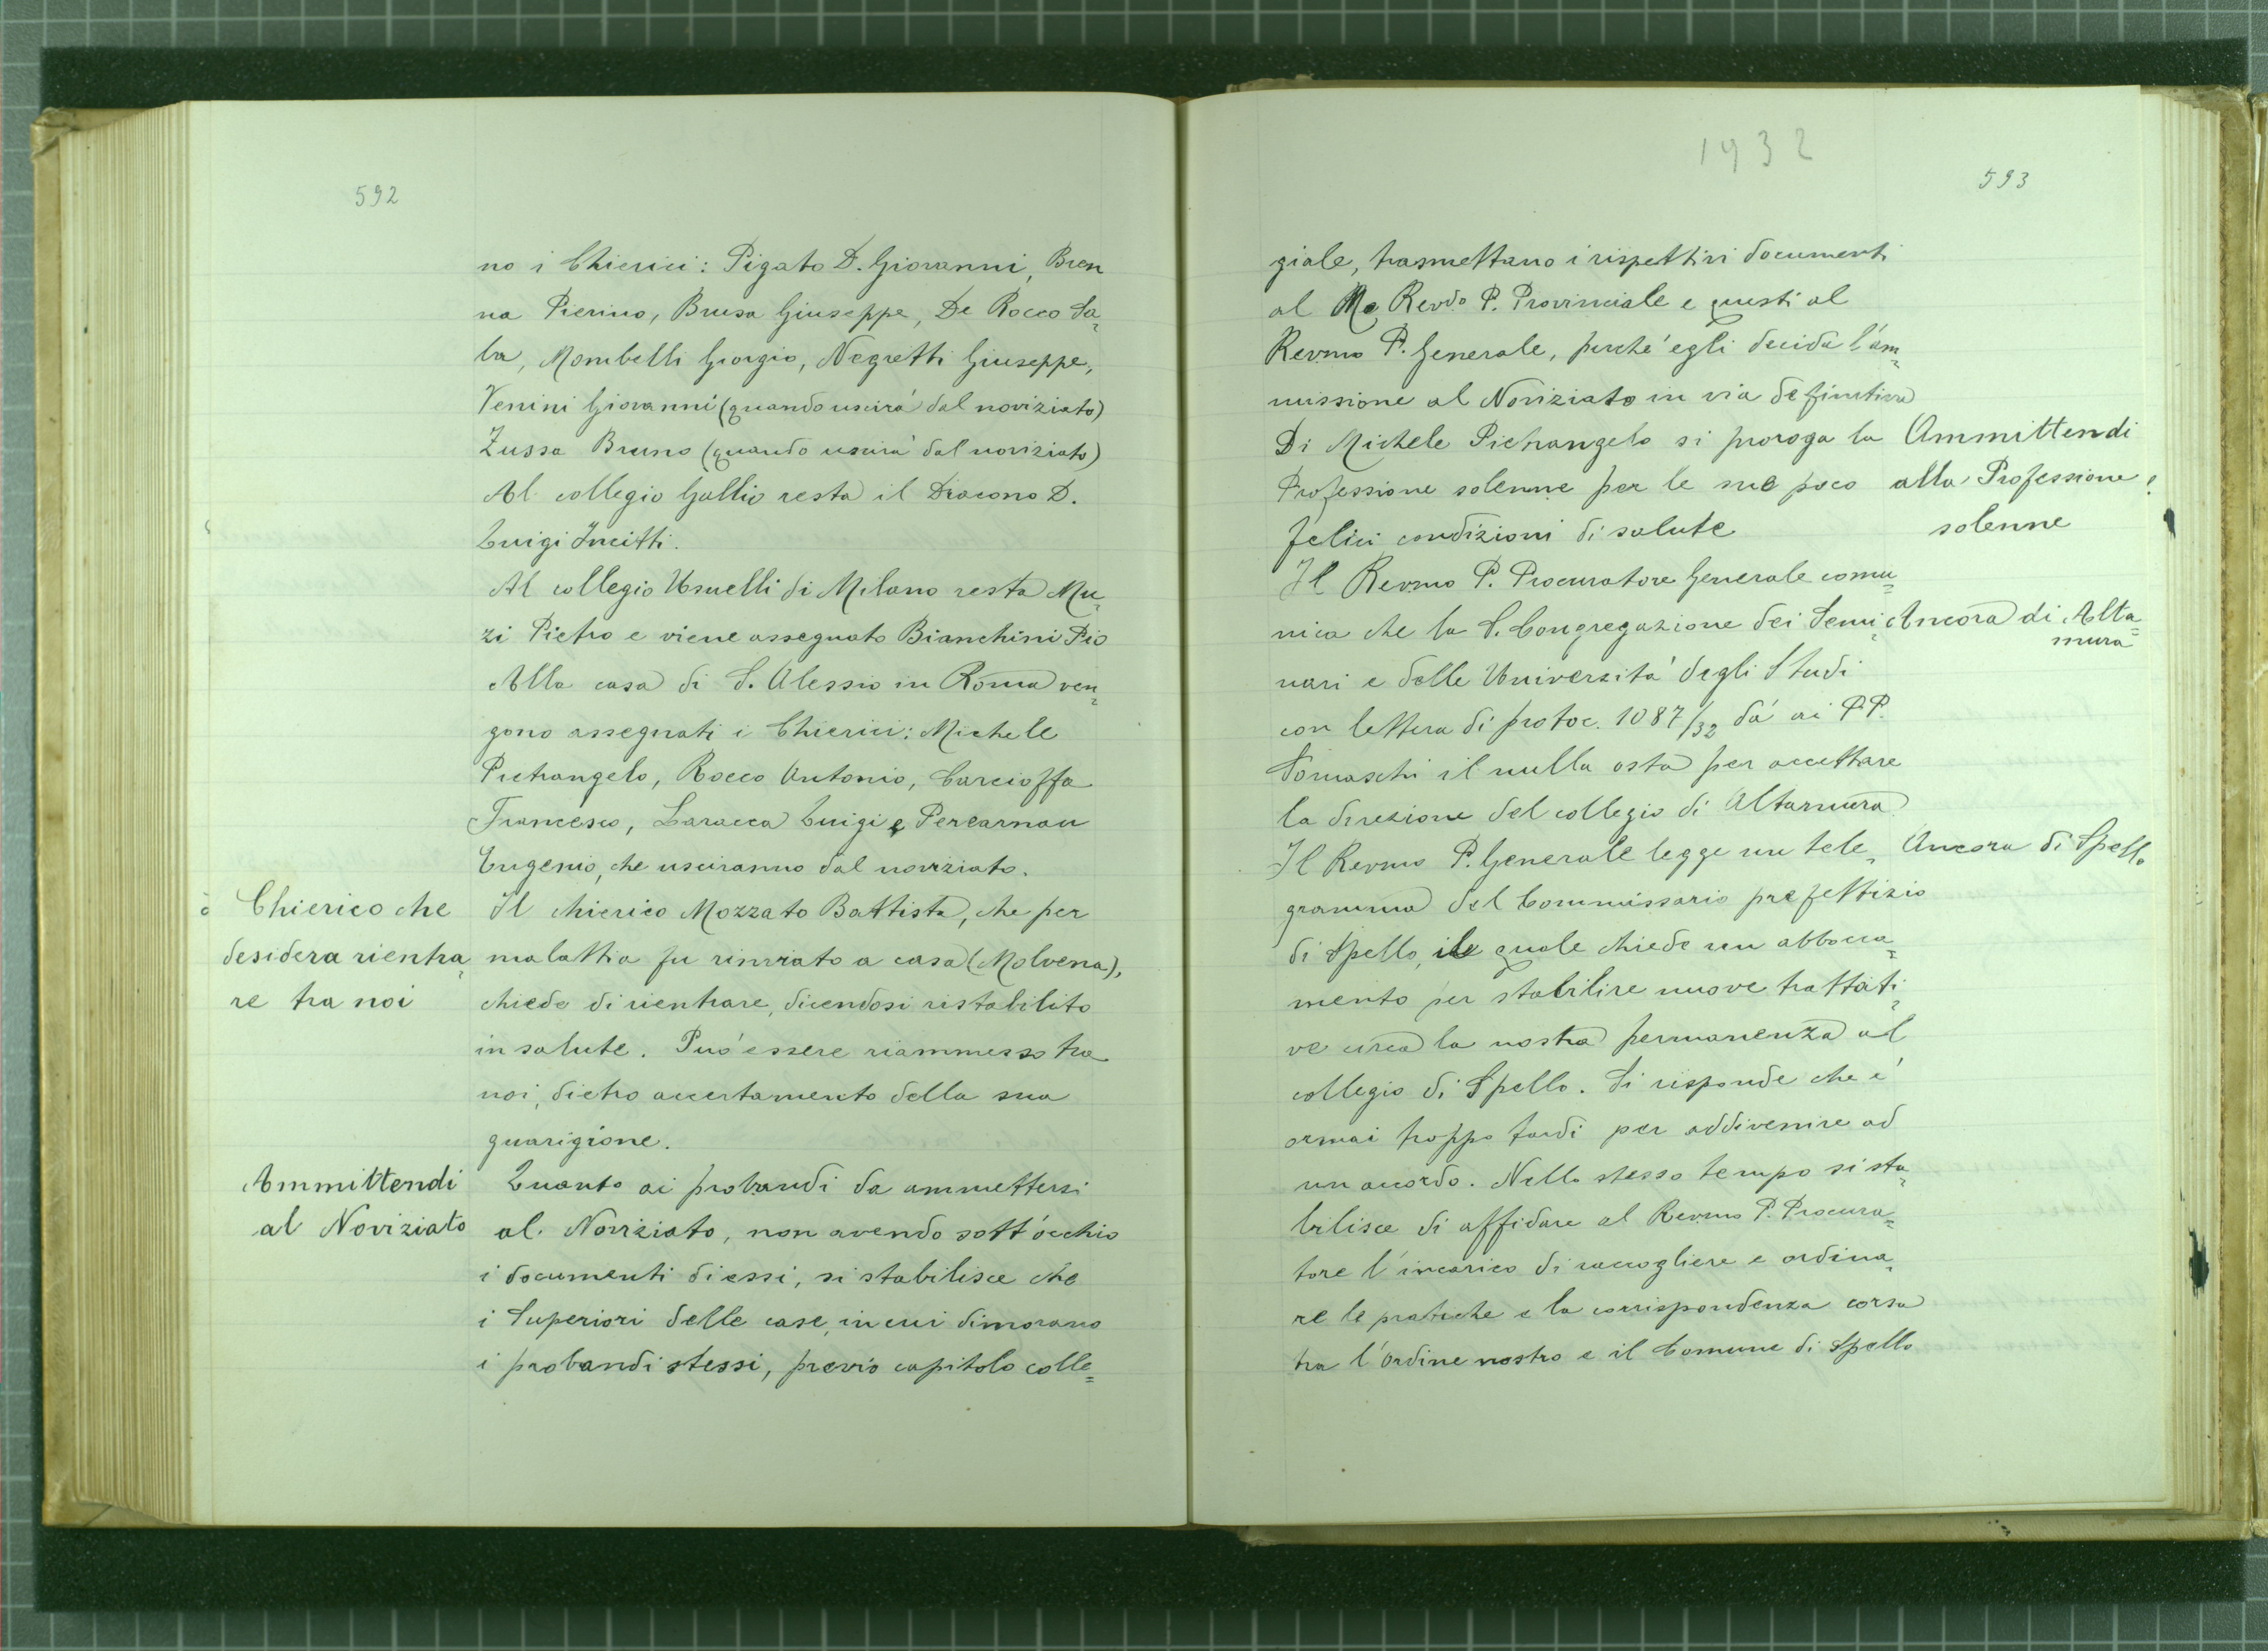 592
no i Chierici: Pigato D. Giovanni, Bren
na Pierino, Brusa Giuseppe, De Rocco Sa=
ba, Mombelli Giorgio, Negretti Giuseppe,
Venini Giovanni (quando uscirà dal noviziato)
Zussa Bruno (quando uscirà dal noviziato)
Al collegio Gallio resta il Diacono D.
Luigi Incitti.
Al collegio Usuelli di Milano resta Mu=
zi Pietro e viene assegnato Bianchini Pio
Alla casa di S. Alessio in Roma ven=
gono assegnati i Chierici: Michele
Pietrangelo, Rocco Antonio, Carcioffa
Francesco, Laracca Luigi e Percarnau
Eugenio, che usciranno dal noviziato.
Chierico che
desidera rientra=
re tra noi
Il chierico Mozzato Battista, che per
malattia fu rinviato a casa (Molvena),
chiede di rientrare, dicendosi ristabilito
in salute. Può essere riammesso tra
noi, dietro accertamento della sua
guarigione.
Ammittendi
al Noviziato
Quanto ai probandi da ammettersi
al Noviziato, non avendo sott'occhio
i documenti di essi, si stabilisce che
i Superiori delle case, in cui dimorano
i probandi stessi, previo capitolo colle=
1932
593
giale, trasmettano i rispettivi documenti
al Mo Revdo P. Provinciale e questi al
Revmo P. Generale, perché egli decida l'am=
missione al Noviziato in via definitiva
Di Michele Pietrangelo si proroga la
Professione solenne per le sue poco
felici condizioni di salute
Ammittendi
alla Professione
solenne
Il Revmo P. Procuratore Generale comu=
nica che la S. Congregazione dei Semi=
nari e delle Università degli Studi
con lettera di protoc. 1087/32 dà ai PP.
Somaschi il nulla osta per accettare
la direzione del collegio di Altamura
Ancora di Alta=
mura
Il Revmo P. Generale legge un tele=
gramma del Commissario prefettizio
di Spello, il quale chiede un abbocca=
mento per stabilire nuove trattati=
ve circa la nostra permanenza al
collegio di Spello. Si risponde che é
ormai troppo tardi per addivenire ad
un accordo. Nello stesso tempo si sta=
bilisce di affidare al Revmo P. Procura=
tore l'incarico di raccogliere e ordina=
re le pratiche e la corrispondenza corsa
tra l'Ordine nostro e il Comune di Spello
Ancora di Spello